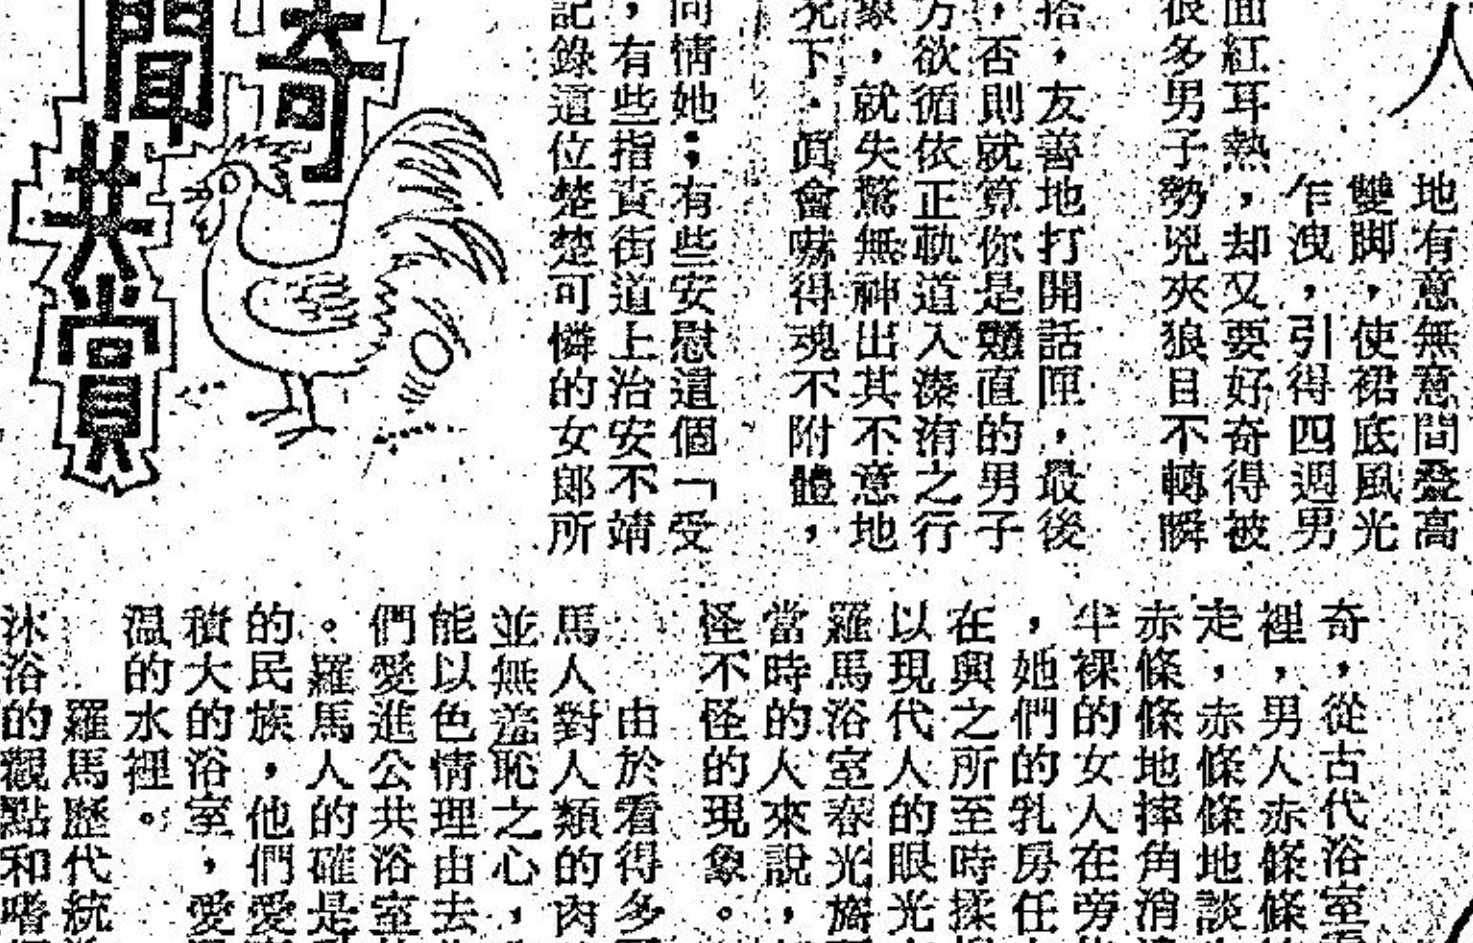 人
地有意無意間叠高
雙脚，使裙底風光
乍洩，引得四週男
面紅耳熱，却又要好奇得被
很多男子勢兇夾狼目不轉瞬
拾，友善地打開話匣，最後
，否則就算你是戅直的男子
方欲循依正軌道入溱洧之行
象，就失驚無神出其不意地
況下，眞會嚇得魂不附體，
同情她；有些安慰這個「受
，有些指責街道上治安不靖
記錄這位楚楚可憐的女郎所
奇
聞
共
賞
奇，從古代浴室
裡，男人赤條條
走，赤條條地談
赤條條地摔角消
半裸的女人在旁
，她們的乳房任
在興之所至時揉
以現代人的眼光
羅馬浴室春光旖
當時的人來說，
怪不怪的現象。
由於看得多
馬人對人類的肉
並無羞恥之心，
能以色情理由去
們愛進公共浴室
。羅馬人的確是
的民族，他們愛
積大的浴室，愛
溫的水裡。
羅馬歷代統
沐浴的觀點和嗜